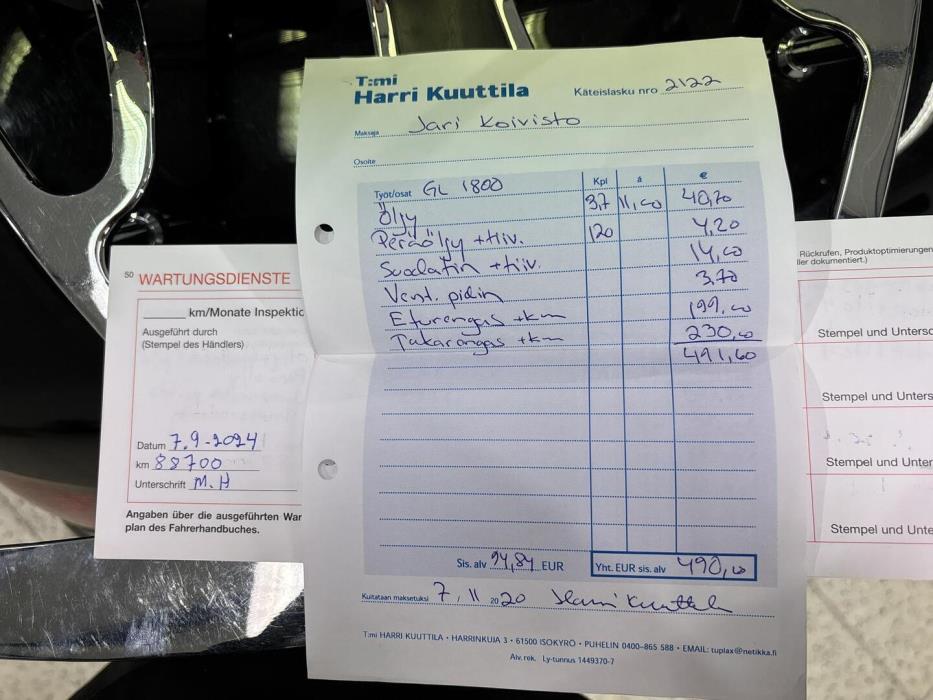 T:mi
Harri Kuuttila
Käteislasku nro 2122
Maksaja Jari Koivisto
Osoite
Työt/osat GL 1800 Kpl á €
Öljy 3,7 11,00 40,70
Peräöljy +tiiv. 120 4,20
Suodatin +tiiv. 14,00
Vent. 3,70
Eturengas +km 199,00
Takarengas +km 230,00
491,60
Sis. alv 94,84 EUR
Yht. EUR sis. alv 490,00
Kuitataan maksetuksi 7 , 11 2020 Harri Kuuttila
T:mi HARRI KUUTTILA • HARRINKUJA 3 • 61500 ISOKYRÖ • PUHELIN 0400-865 588 • EMAIL: tuplax@netikka.fi
Alv. rek. Ly-tunnus 1449370-7
50 WARTUNGSDIENSTE
km/Monate Inspektio
Ausgeführt durch
(Stempel des Händlers)
Datum 7.9-2024
km 88700
Unterschrift M.H
Angaben über die ausgeführten War
plan des Fahrerhandbuches.
Rückrufen, Produktoptimierungen
ller dokumentiert.)
Stempel und Untersc
Stempel und Unters
Stempel und Unter
Stempel und Unte